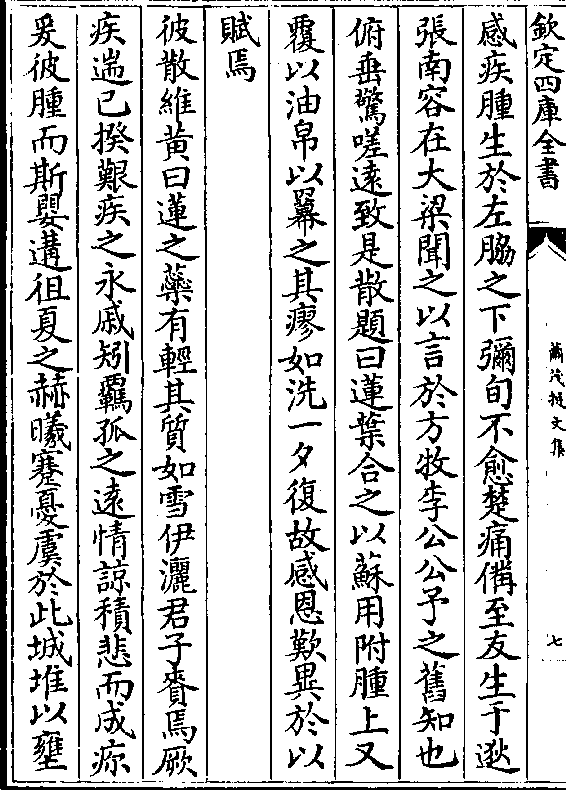 欽定四庫全書
蕭茂挺文集
七
感疾腫生於左脇之下彌旬不愈楚痛備至友生于逖
張南容在大梁聞之以言於方牧李公公予之舊知也
俯垂驚嗟遠致是散題曰蓮葉合之以蘇用附腫上又
覆以油帛以羃之其瘳如洗一夕復故感恩歎異於以
賦焉
彼散維黃曰蓮之蘂有輕其質如雪伊灑君子賚焉厥
疾遄已揆艱疾之永戚矧羈孤之遠情諒積悲而成疢
爰彼腫而斯嬰遘徂夏之赫曦蹇憂虞於此城堆以壅